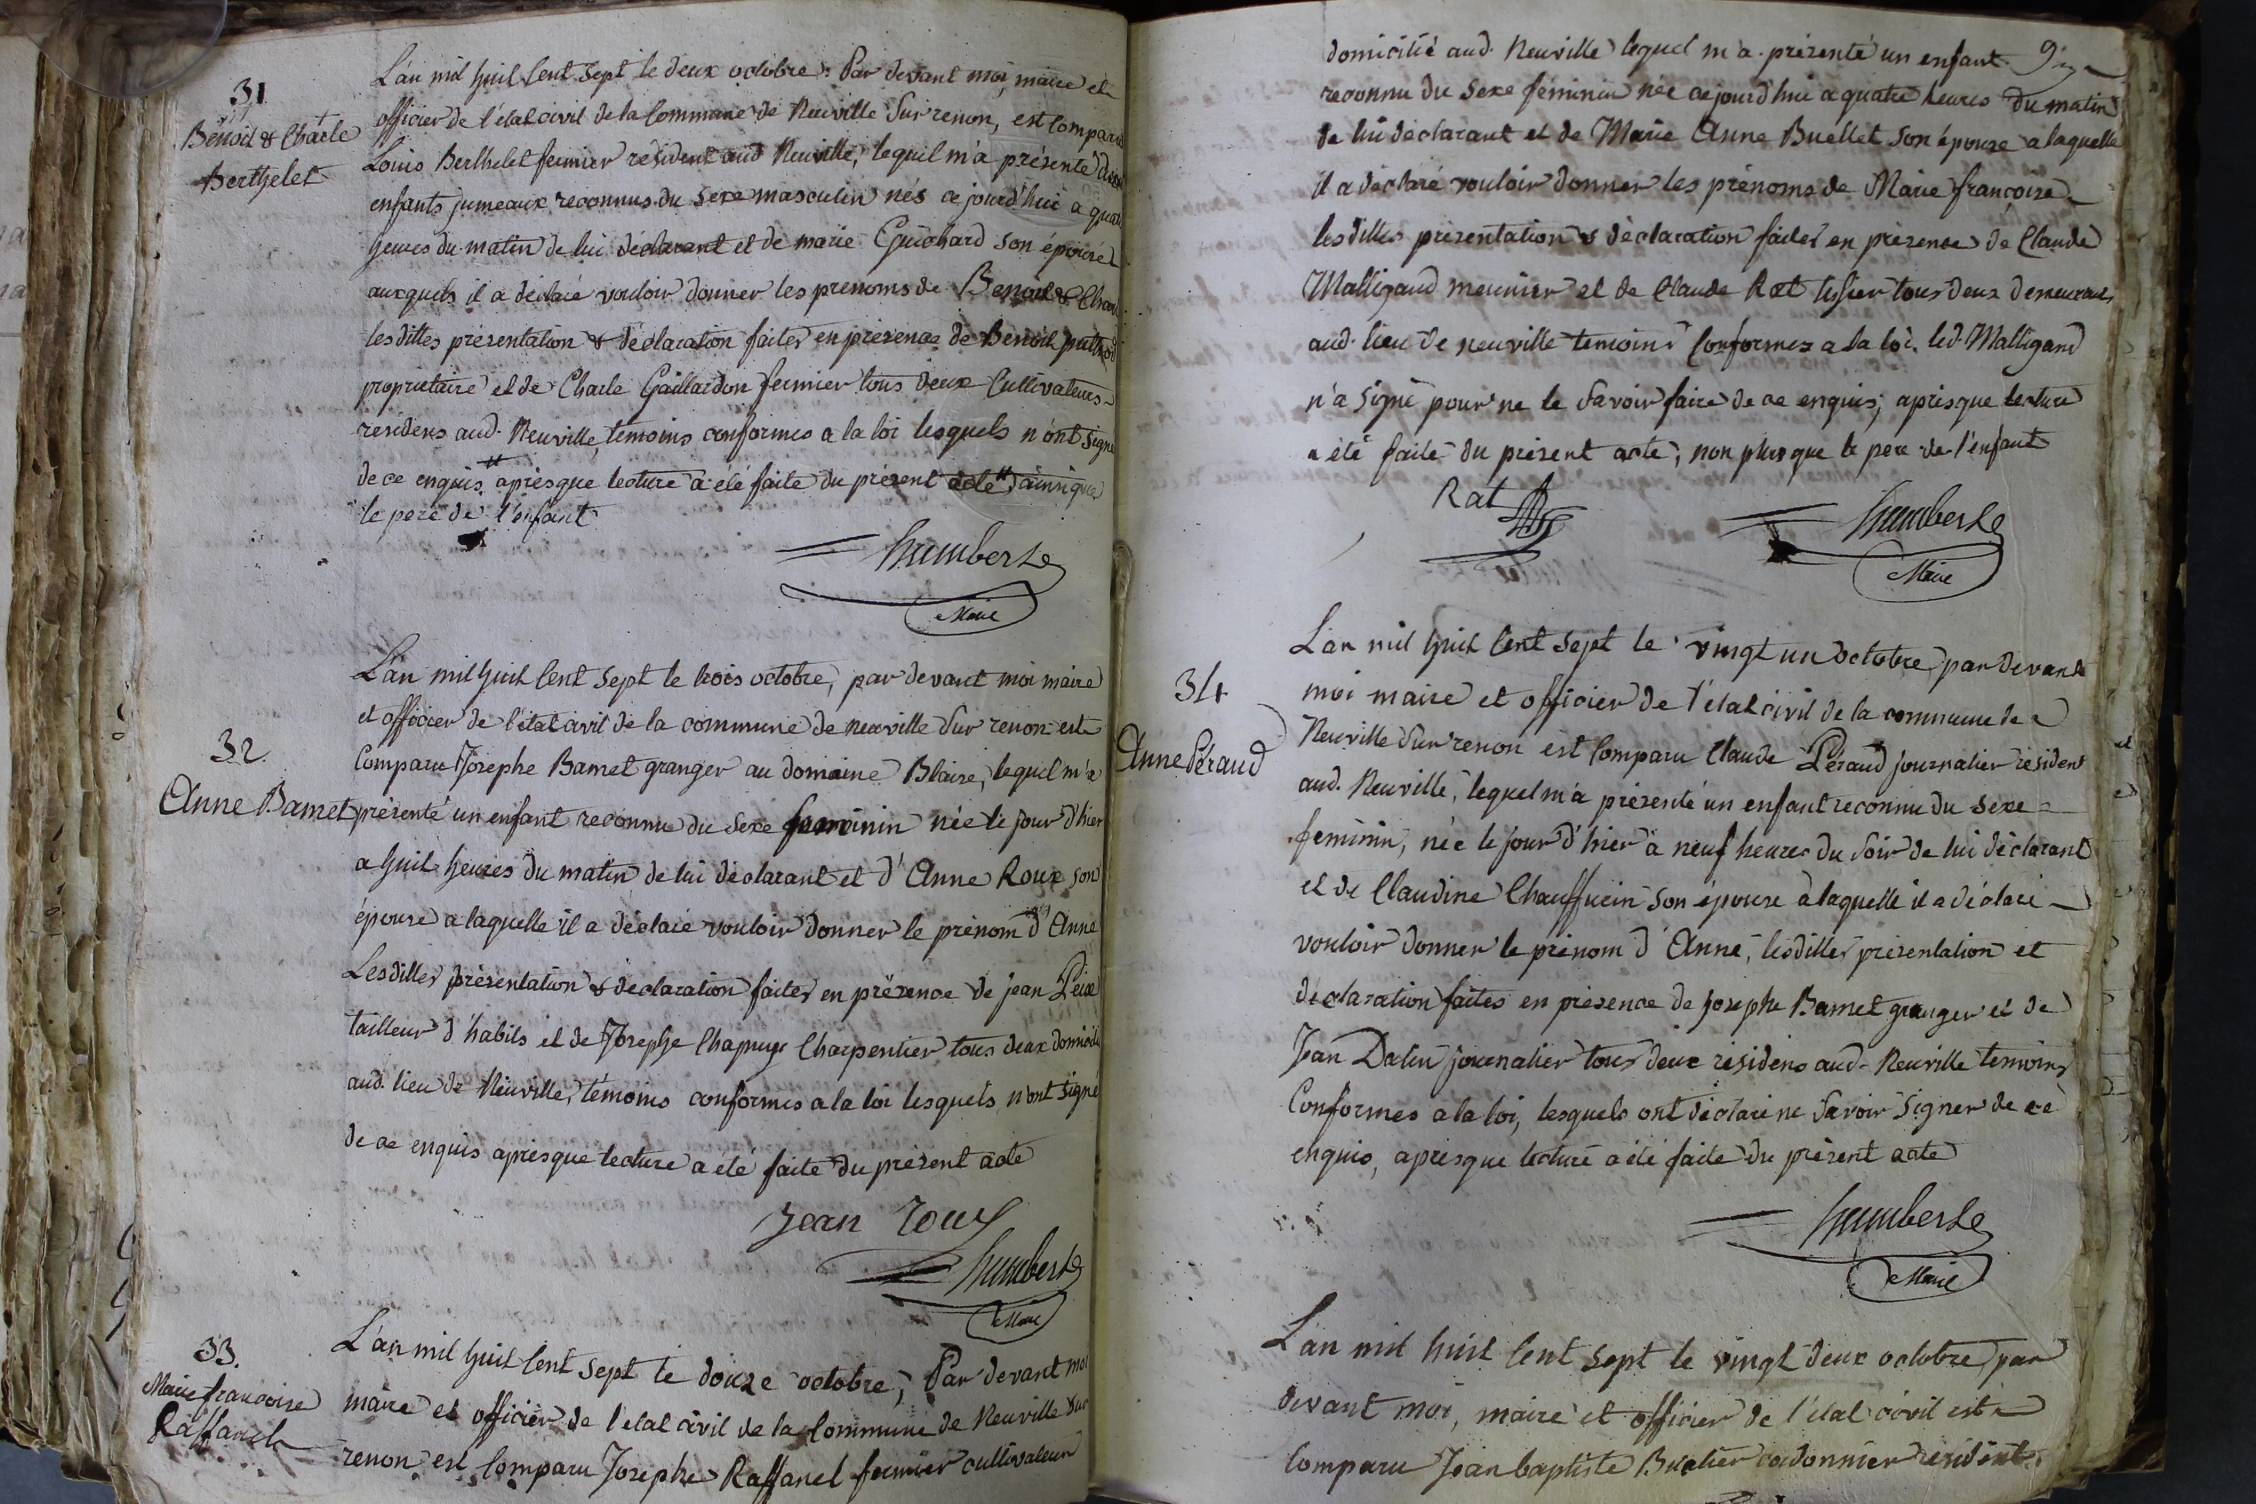 31
Benoit & Charle
Berthelet
L'an mil huit Cent Sept le deux octobre. Par devant moi, maire et
officier de l'état civil de la Commune de Neuville Sur renon, est Comparu
Louis Berthelet fermier résident aud Neuville, lequel m'a présenté deux
enfants jumeaux reconnus du Sexe masculin nés ce jourd'hui a quatre
heures du matin de lui déclarant et de marie Guichard Son épouse
auxquels il a déclaré vouloir donner les prenoms de Benoit & Charle
lesdittes présentation & déclaration faites en présence de Benoit
proprietaire et de Charle Gaillardon fermier tous deux Cultivateurs
résidens aud. Neuville, temoins conformes a la loi lesquels n'ont Signé
de ce enquis apresque lecture a été faite du présent acte ainsi que
le pere de l'enfant
humbert
Maire
32.
Anne Bamet
L'an mil huit Cent Sept le trois octobre, par devant moi maire
et officier de l'état civil de la commune de neuville Sur renon est
Comparu Josephe Bamet granger au domaine Blaire, lequel m'a
présenté un enfant reconnu du Sexe feminin née le jour d'hier
a huit heures du matin de lui déclarant et d'Anne Roux son
épouse a laquelle il a déclaré vouloir donner le prénom d'Anne
Lesdittes présentation & déclaration faites en présence de jean
tailleur d'habits et de Josephe Chapuys Charpentier tous deux domiciliés
aud. lieu de Neuville, témoins conformes a la loi lesquels n'ont signé
de ce enquis apresque lecture a été faite du présent acte
Jean
humbert
Maire
33.
Marie françoise
Raffanel
L'an mil huit Cent Sept le douze octobre, Par devant moi
maire et officier de l'état civil de la Commune de Neuville Sur
renon est Comparu Josephe Raffanel fermier cultivateur
domicilié aud. Neuville lequel m'a présenté un enfant
reconnu du Sexe féminin née ce jourd'hui a quatre heures du matin
de lui déclarant et de Marie Anne Buellet son épouse a laquelle
il a déclaré vouloir donner les prénoms de Marie françoise
lesdittes présentation & déclaration faites en présence de Claude
Malligand meunier et de Claude Rat tissier tous deux demeurants
aud. lieu de neuville temoins Conformes a la loi. led. Malligand
n'a Signé pour ne le Savoir faire de ce enquis, apresque lecture
a été faite du présent acte, non plus que le pere de l'enfant
Rat
humbert
Maire
34
Anne Péraud
L'an mil huit Cent Sept le vingt un octobre par devant
moi maire et officier de l'état civil de la commune de
Neuville Sur renon est Comparu Claude Péraud journalier résident
aud. Neuville, lequel m'a présenté un enfant reconnu du Sexe
feminin, née le jour d'hier a neuf heures du Soir de lui déclarant
et de Claudine Son épouse a laquelle il a déclaré
vouloir donner le prénom d'Anne, lesdittes présentation et
déclaration faites en présence de Josephe Bamet granger et de
Jean Datin journalier tous deux résidens aud. Neuville temoins
Conformes a la loi, lesquels ont déclaré ne Savoir Signer de ce
enquis, apresque lecture a été faite du présent acte
humbert
Maire
L'an mil huit Cent Sept le vingt deux octobre par
devant moi, maire et officier de l'état civil est
Comparu Jean baptiste cordonnier résident